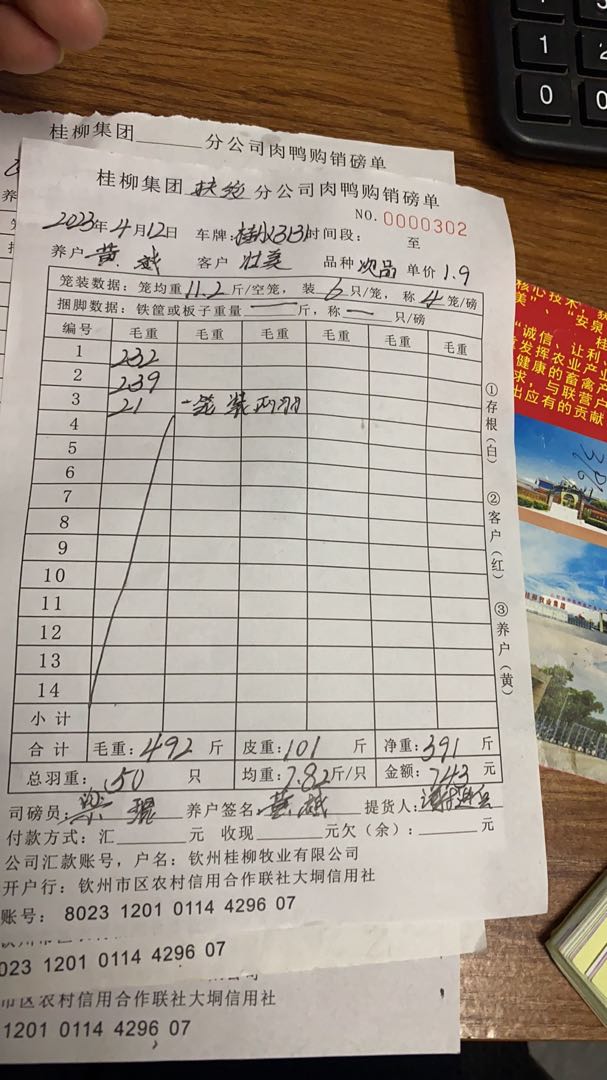 桂柳集团______分公司肉鸭购销磅单
桂柳集团 扶绥 分公司肉鸭购销磅单
NO. 0000302
2023年4月12日 车牌: 时间段: 至
养户 黄 客户 壮美 品种 次品 单价 1.9
笼装数据:笼均重 11.2 斤/空笼, 装 6 只/笼, 称 4 笼/磅
捆脚数据:铁筐或板子重量 — 斤,称 — 只/磅
编号 毛重 毛重 毛重 毛重 毛重 毛重
1 232
2 239
3 21 一笼装两羽
4
5
6
7
8
9
10
11
12
13
14
小计
合计 毛重:492 斤 皮重:101 斤 净重:391 斤
总羽重: 50 只 均重:7.82斤/只 金额:743 元
司磅员: 养户签名:黄 提货人:
付款方式:汇______元 收现______元欠(余):______元
公司汇款账号,户名:钦州桂柳牧业有限公司
开户行:钦州市区农村信用合作联社大垌信用社
账号: 8023 1201 0114 4296 07
①存根(白)
②客户(红)
③养户(黄)
023 1201 0114 4296 07
市区农村信用合作联社大垌信用社
1201 0114 4296 07
核心技术,
美”、“安泉
桂
“诚信、让利、
发挥农业产业
健康的畜禽
求,与联营户
出应有的贡献
桂柳牧业集团
1
2
0
0